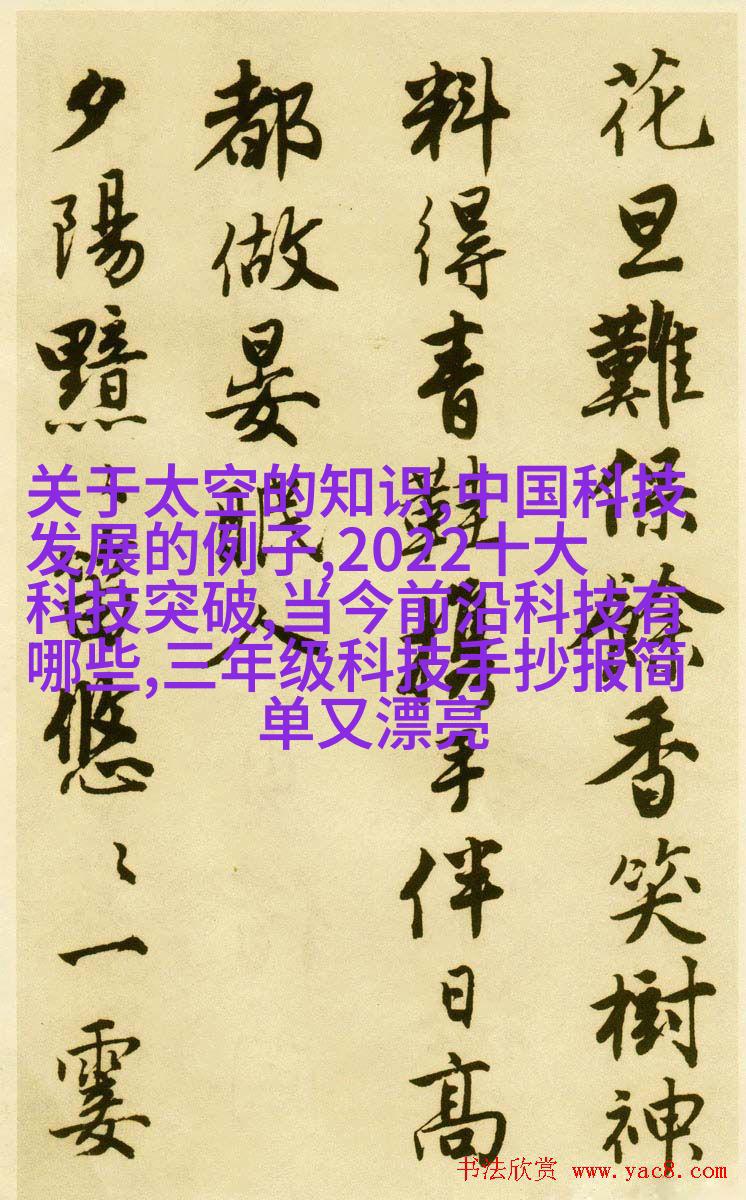 花旦難保餘香笑樹神
料得青鞋攜手伴日高
都做晏眠人
夕陽黯悠〻一霎
关于太空的知识,中国科技
发展的例子,2022十大
科技突破,当今前沿科技有
哪些,三年级科技手抄报简
单又漂亮
书法欣赏 www.yac8.com